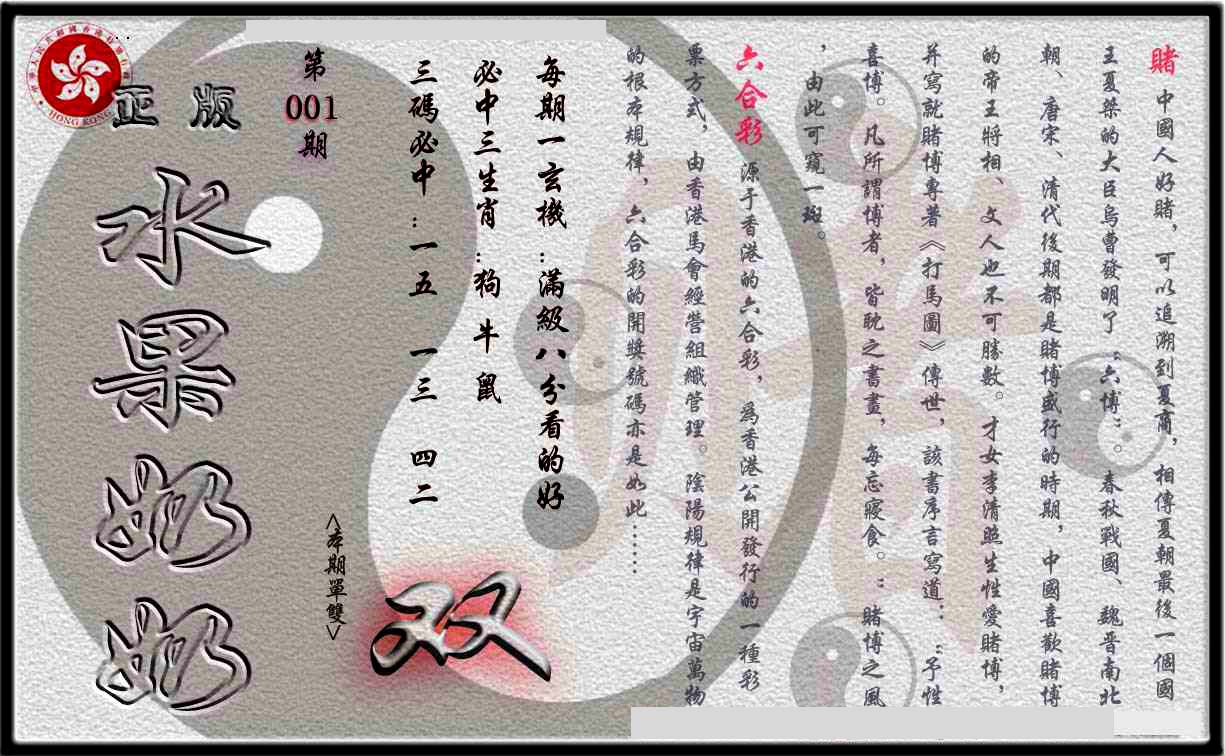 賭 中國人好賭，可以追溯到夏商，相傳夏朝最後一個國
王夏桀的大臣烏曹發明了“六博”。春秋戰國、魏晉南北
朝、唐宋、清代後期都是賭博盛行的時期，中國喜歡賭博
的帝王將相、文人也不可勝數。才女李清照生性愛賭博，
并寫就賭博專著《打馬圖》傳世，該書序言寫道：“予性
喜博。凡所謂博者，皆耽之書畫，每忘寢食。”賭博之風
，由此可窺一斑。
六合彩 源于香港的六合彩，為香港公開發行的一種彩
票方式，由香港馬會經營組織管理。陰陽規律是宇宙萬物
的根本規律，六合彩的開獎號碼亦是如此……
每期一玄機：滿級八分看的好
必中三生肖：狗 牛 鼠
三碼必中：一五 一三 四二
第
001
期
<本期單雙>
双
正版
水果奶奶
HONG KONG